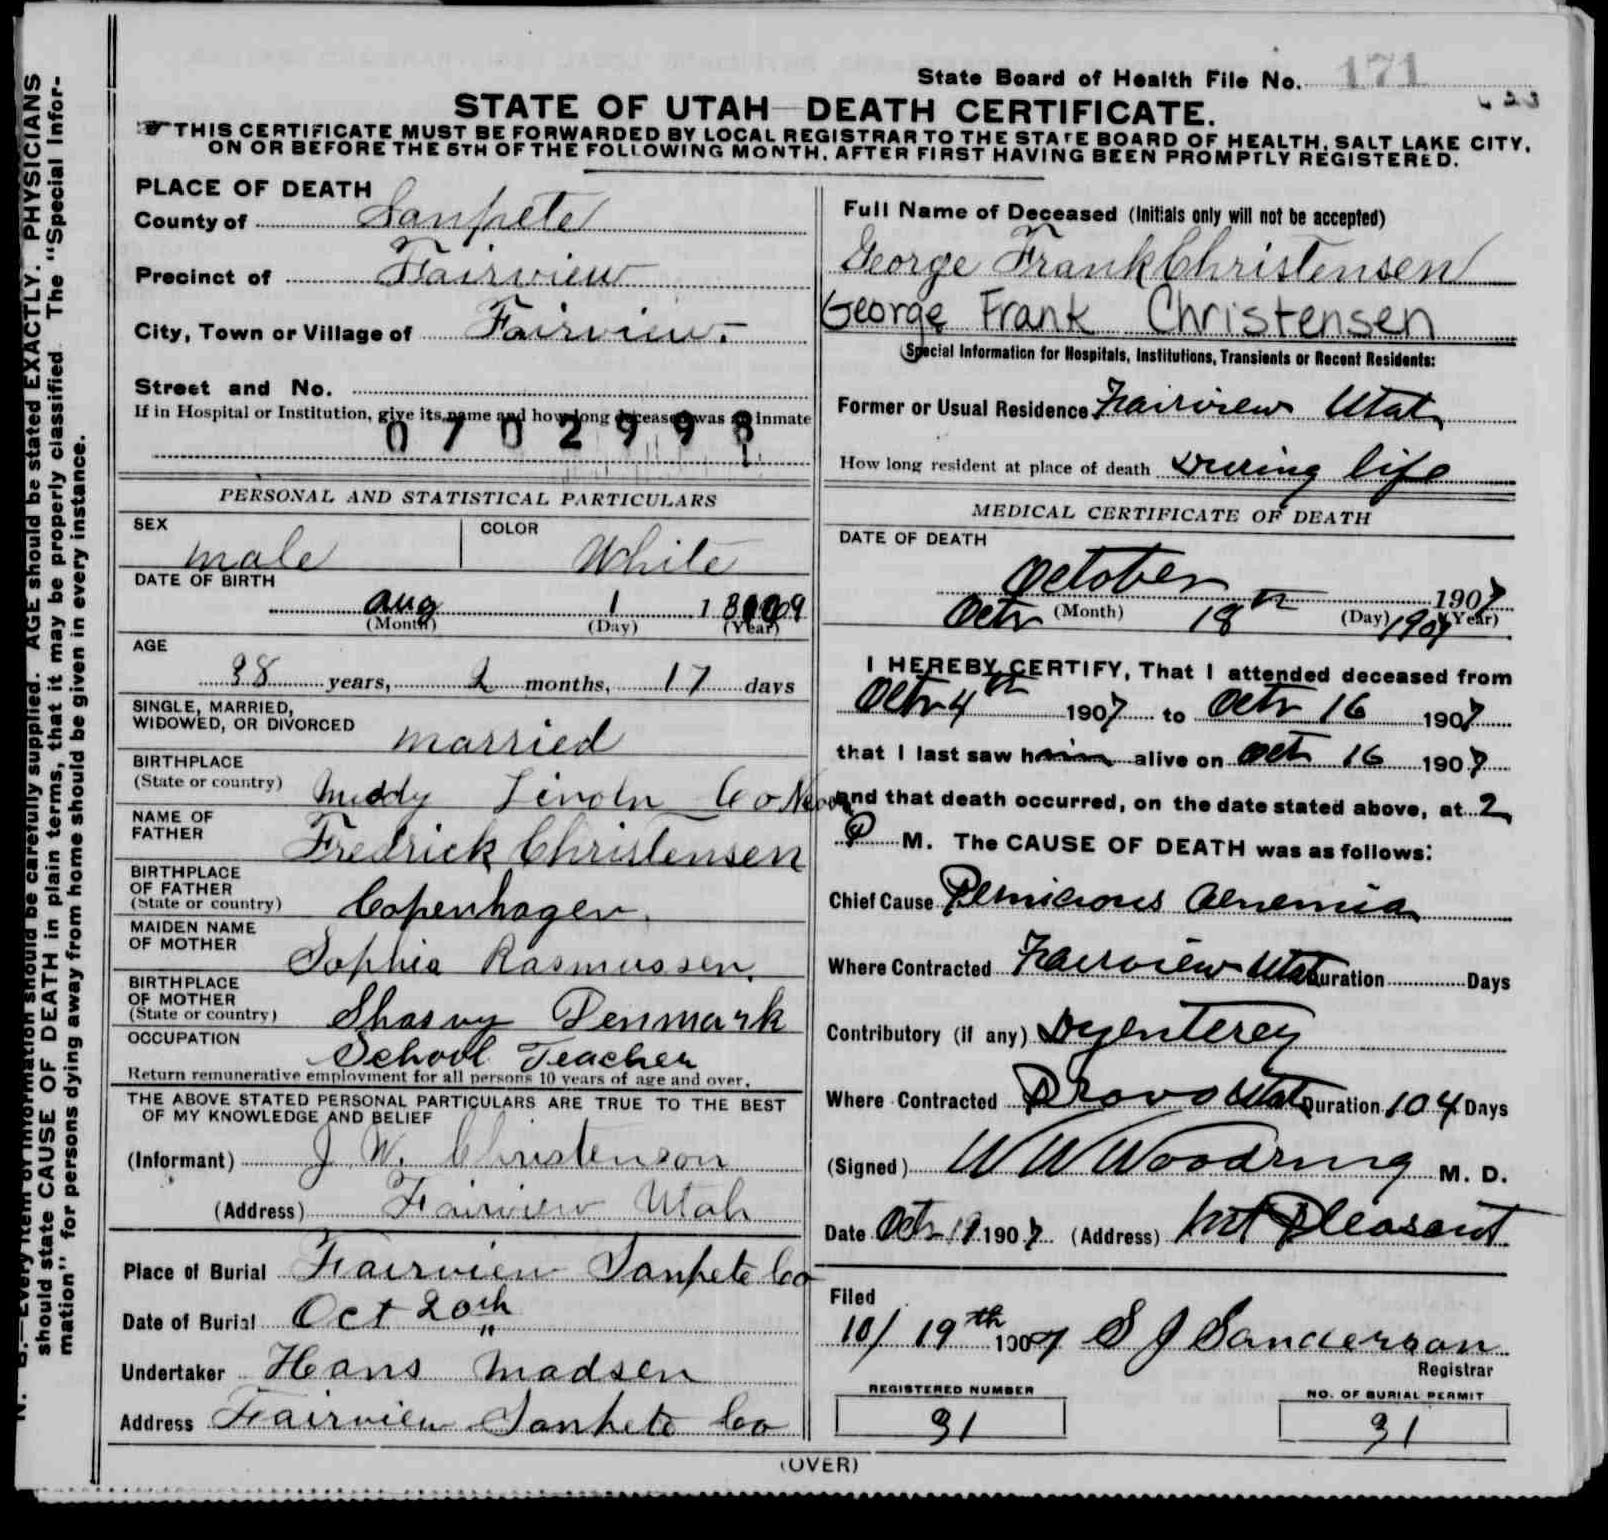 State Board of Health File No. 171
STATE OF UTAH—DEATH CERTIFICATE.
THIS CERTIFICATE MUST BE FORWARDED BY LOCAL REGISTRAR TO THE STATE BOARD OF HEALTH, SALT LAKE CITY,
ON OR BEFORE THE 5TH OF THE FOLLOWING MONTH, AFTER FIRST HAVING BEEN PROMPTLY REGISTERED.
PLACE OF DEATH
County of Sanpete
Precinct of Fairview
City, Town or Village of Fairview.
Street and No.
If in Hospital or Institution, give its name and how long deceased was inmate
0702998
PERSONAL AND STATISTICAL PARTICULARS
SEX male COLOR White
DATE OF BIRTH
Aug 1
(Month) (Day) (Year)
AGE
38 years, 2 months, 17 days
SINGLE, MARRIED,
WIDOWED, OR DIVORCED married
BIRTHPLACE
(State or country) Muddy Co
NAME OF
FATHER Fredrick Christensen
BIRTHPLACE
OF FATHER
(State or country) Copenhagen.
MAIDEN NAME
OF MOTHER Sophia Rasmussen.
BIRTHPLACE
OF MOTHER
(State or country) Denmark
OCCUPATION School Teacher
Return remunerative employment for all persons 10 years of age and over.
THE ABOVE STATED PERSONAL PARTICULARS ARE TRUE TO THE BEST
OF MY KNOWLEDGE AND BELIEF
(Informant) J W. Christenson
(Address) Fairview Utah
Place of Burial Fairview Sanpete Co
Date of Burial Oct 20th
Undertaker Hans Madsen
Address Fairview Sanpete Co
Full Name of Deceased (Initials only will not be accepted)
George Frank Christensen
George Frank Christensen
(Special Information for Hospitals, Institutions, Transients or Recent Residents:
Former or Usual Residence Fairview Utah
How long resident at place of death During life
MEDICAL CERTIFICATE OF DEATH
DATE OF DEATH
October 1907
(Month) (Day) (Year)
Octr 18th 1907
I HEREBY CERTIFY, That I attended deceased from
Octr 4th 1907 to Octr 16 1907
that I last saw him alive on Oct 16 1907
and that death occurred, on the date stated above, at 2
P M. The CAUSE OF DEATH was as follows:
Chief Cause Pernicious Anemia
Where Contracted Fairview Utah Duration Days
Contributory (if any) Dysenterey
Where Contracted Provo Utah Duration 104 Days
(Signed) W W Woodring M. D.
Date Octr 19 1907 (Address) Mt Pleasant
Filed
10/ 19th 1907 S J Sanderson
Registrar
REGISTERED NUMBER
31
NO. OF BURIAL PERMIT
31
(OVER)
N. B.—Every item of information should be carefully supplied. AGE should be stated EXACTLY. PHYSICIANS
should state CAUSE OF DEATH in plain terms, that it may be properly classified. The "Special Infor-
mation" for persons dying away from home should be given in every instance.